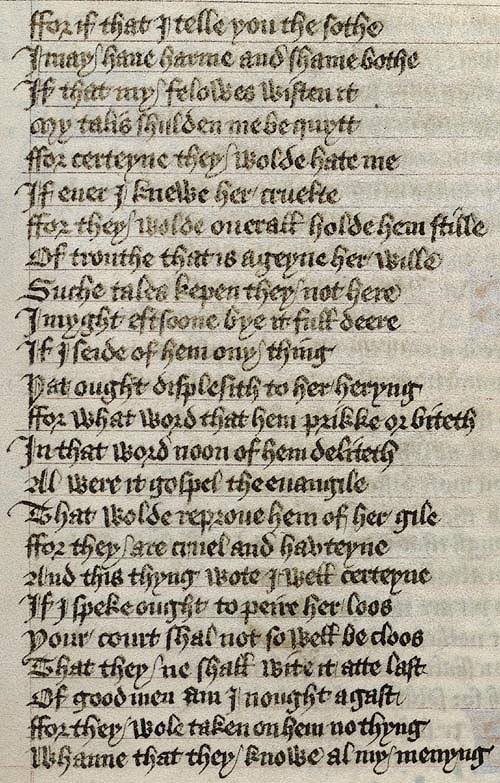 ffor if that I telle you the sothe
I may haue harme and shame bothe
If that my felowes wisten it
My talis shulden me be quytt
ffor certeyne they wolde hate me
If euer I knewe her cruelte
ffor they wolde ouerall holde hem stille
Of trouthe that is ageyne her wille
Suche tales kepen they not here
I myght eftsoone bye it full deere
If I seide of hem ony thing
Þat ought displesith to her heryng
ffor what word that hem prikke or biteth
In that word noon of hem deliteth
Al were it gospel the euangile
That wolde reproue hem of her gile
ffor they are cruel and hauteyne
And this thyng wote I well certeyne
If I speke ought to peire her loos
Your court shal not so well be cloos
That they ne shall wite it atte last
Of good men am I nought agast
ffor they wole taken on hem no thyng
Whanne that they knowe al my menyng